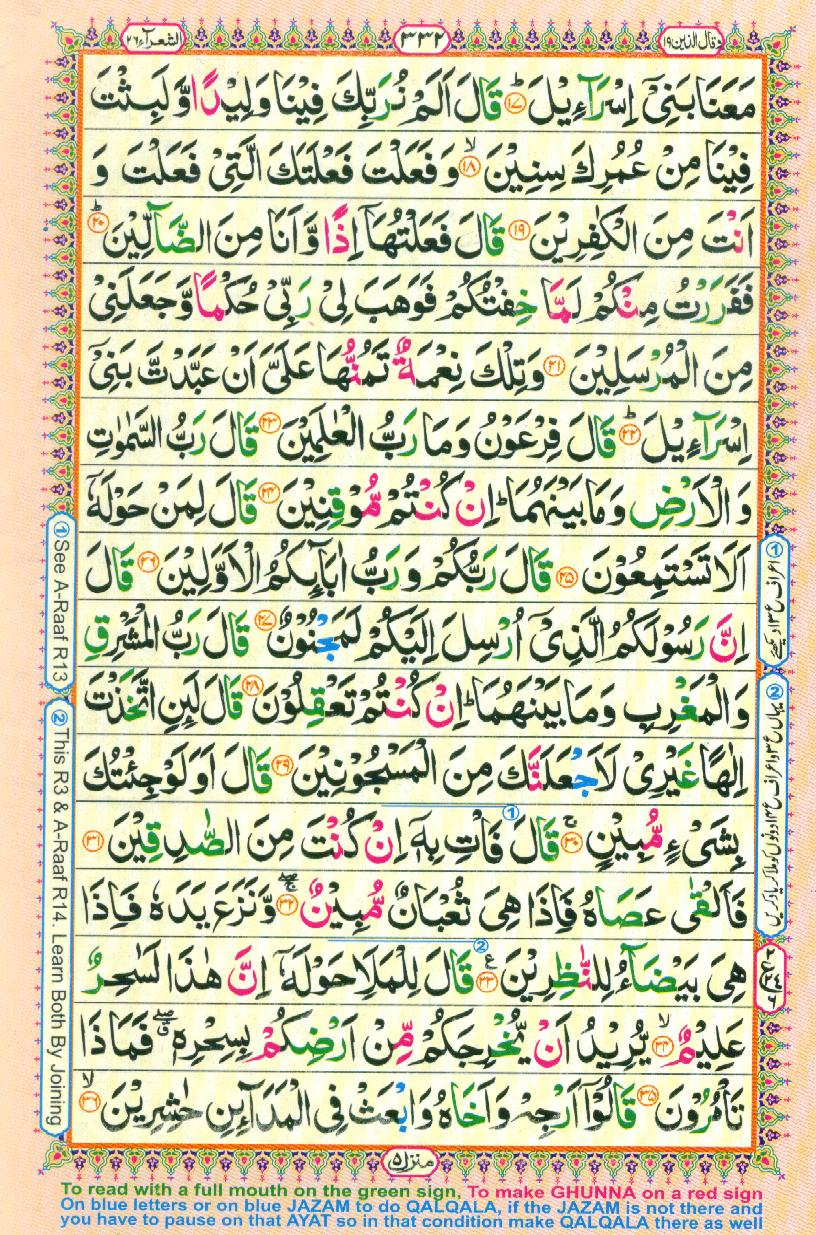 وقال الذین ۱۹
۳۳۲
الشعرآء ۲۶
مَعَنَا بَنِیْۤ اِسْرَآءِیْلَ ؕ﴿۱۷﴾ قَالَ اَلَمْ نُرَبِّكَ فِیْنَا وَلِیْدًا وَّ لَبِثْتَ
فِیْنَا مِنْ عُمُرِكَ سِنِیْنَ ۙ﴿۱۸﴾ وَ فَعَلْتَ فَعْلَتَكَ الَّتِیْ فَعَلْتَ وَ
اَنْتَ مِنَ الْكٰفِرِیْنَ ﴿۱۹﴾ قَالَ فَعَلْتُهَاۤ اِذًا وَّ اَنَا مِنَ الضَّآلِّیْنَ ؕ﴿۲۰﴾
فَفَرَرْتُ مِنْكُمْ لَمَّا خِفْتُكُمْ فَوَهَبَ لِیْ رَبِّیْ حُكْمًا وَّ جَعَلَنِیْ
مِنَ الْمُرْسَلِیْنَ ﴿۲۱﴾ وَ تِلْكَ نِعْمَةٌ تَمُنُّهَا عَلَیَّ اَنْ عَبَّدْتَّ بَنِیْۤ
اِسْرَآءِیْلَ ؕ﴿۲۲﴾ قَالَ فِرْعَوْنُ وَ مَا رَبُّ الْعٰلَمِیْنَ ﴿۲۳﴾ قَالَ رَبُّ السَّمٰوٰتِ
وَ الْاَرْضِ وَ مَا بَیْنَهُمَا ؕ اِنْ كُنْتُمْ مُّوْقِنِیْنَ ﴿۲۴﴾ قَالَ لِمَنْ حَوْلَهٗۤ
اَلَا تَسْتَمِعُوْنَ ﴿۲۵﴾ قَالَ رَبُّكُمْ وَ رَبُّ اٰبَآئِكُمُ الْاَوَّلِیْنَ ﴿۲۶﴾ قَالَ
اِنَّ رَسُوْلَكُمُ الَّذِیْۤ اُرْسِلَ اِلَیْكُمْ لَمَجْنُوْنٌ ﴿۲۷﴾ قَالَ رَبُّ الْمَشْرِقِ
وَ الْمَغْرِبِ وَ مَا بَیْنَهُمَا ؕ اِنْ كُنْتُمْ تَعْقِلُوْنَ ﴿۲۸﴾ قَالَ لَئِنِ اتَّخَذْتَ
اِلٰهًا غَیْرِیْ لَاَجْعَلَنَّكَ مِنَ الْمَسْجُوْنِیْنَ ﴿۲۹﴾ قَالَ اَوَ لَوْ جِئْتُكَ
بِشَیْءٍ مُّبِیْنٍ ۚ﴿۳۰﴾ ① قَالَ فَاْتِ بِهٖۤ اِنْ كُنْتَ مِنَ الصّٰدِقِیْنَ ﴿۳۱﴾
فَاَلْقٰی عَصَاهُ فَاِذَا هِیَ ثُعْبَانٌ مُّبِیْنٌ ۚۖ﴿۳۲﴾ وَّ نَزَعَ یَدَهٗ فَاِذَا
هِیَ بَیْضَآءُ لِلنّٰظِرِیْنَ ﴿۳۳﴾ ع ② قَالَ لِلْمَلَاِ حَوْلَهٗۤ اِنَّ هٰذَا لَسٰحِرٌ
عَلِیْمٌ ۙ﴿۳۴﴾ یُّرِیْدُ اَنْ یُّخْرِجَكُمْ مِّنْ اَرْضِكُمْ بِسِحْرِهٖ ۖۗ فَمَا ذَا
تَاْمُرُوْنَ ﴿۳۵﴾ قَالُوْۤا اَرْجِهْ وَ اَخَاهُ وَ ابْعَثْ فِی الْمَدَآئِنِ حٰشِرِیْنَ ۙ﴿۳۶﴾
① See A-Raaf R13
② This R3 & A-Raaf R14. Learn Both By Joining
منزل ۵
To read with a full mouth on the green sign, To make GHUNNA on a red sign
On blue letters or on blue JAZAM to do QALQALA, if the JAZAM is not there and
you have to pause on that AYAT so in that condition make QALQALA there as well